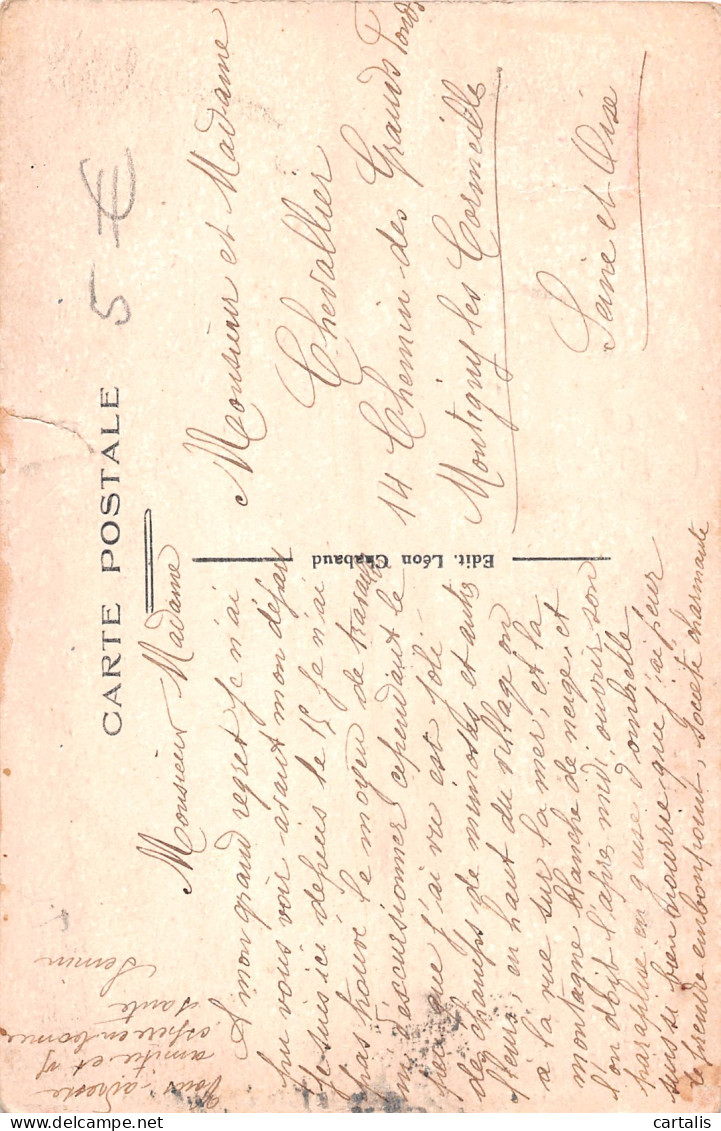 CARTE POSTALE
5 €
Monsieur Madame
A mon grand regret je n'ai
pu vous voir avant mon départ
je suis ici depuis le 15 je n'ai
pas trouvé le moyen de travailler
ni d'excursionner cependant le
peu que j'ai vu est joli.
des champs de mimosas et autres
fleurs, en haut du village on
a la vue sur la mer, et la
montagne blanche de neige, et
l'on doit l'après midi ouvrir son
parapluie en guise d'ombrelle
suis si bien nourrie que j'ai peur
de prendre embonpoint, société charmante
vous adresse
amitié et
espère en bonne
santé
Edit. Léon Chabaud
Monsieur et Madame
Chevallier
14 Chemin des Grands Fonds
Montigny les Cormeille
Seine et Oise
cartalis
DELCAMPE.COM